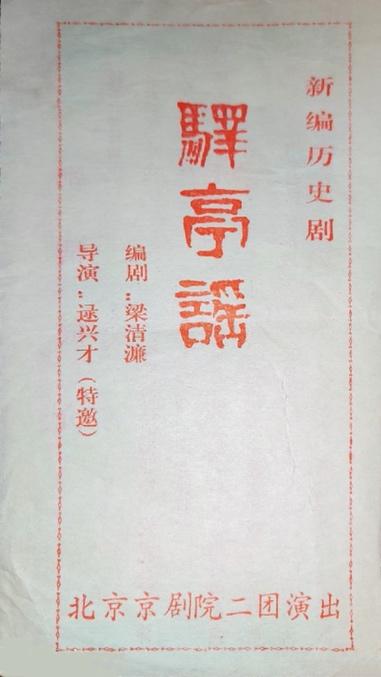 新编历史剧
驛亭謡
编剧：梁清濂
导演：逯兴才（特邀）
北京京剧院二团演出